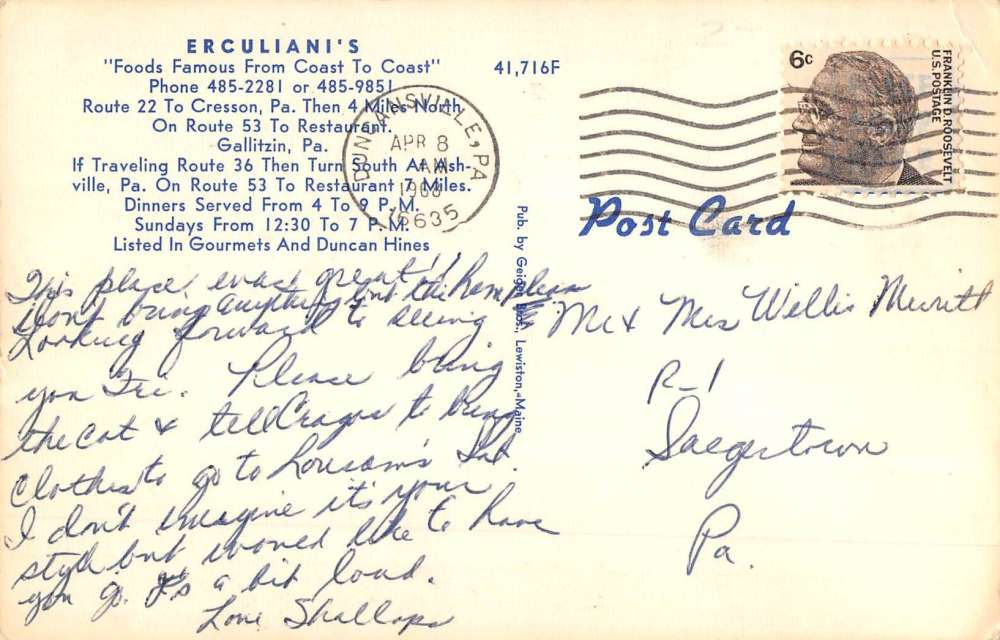 ERCULIANI'S
"Foods Famous From Coast To Coast"
Phone 485-2281 or 485-9851
Route 22 To Cresson, Pa. Then 4 Miles North
On Route 53 To Restaurant.
Gallitzin, Pa.
If Traveling Route 36 Then Turn South At Ash-
ville, Pa. On Route 53 To Restaurant 7 Miles.
Dinners Served From 4 To 9 P.M.
Sundays From 12:30 To 7 P.M.
Listed In Gourmets And Duncan Hines
41,716F
DUNCANSVILLE, PA
APR 8
AM
1968
16635
6c
FRANKLIN D. ROOSEVELT
U.S. POSTAGE
Post Card
Pub. by Geiger Bros., Lewiston, Maine
This place was great!!
Don't bring anything but the ham please
Looking forward to seeing
you Fri. Please bring
the cat & tell to bring
clothes to go to Sat.
I don't imagine it's your
style but would like to have
you go. It's a bit loud.
Love
Mr & Mrs Willis Merritt
R-1
Saegertown
Pa.